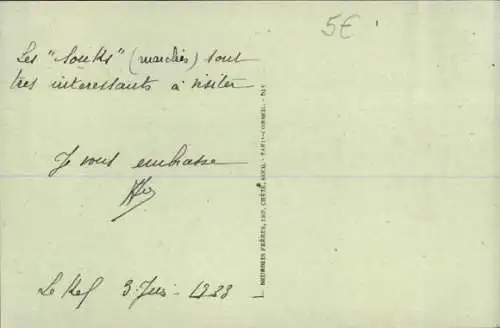 5€
Les "Souks" (marchés) sont
très interessants à visiter
Je vous embrasse
Le Kef 3 Juin - 1938
NEURDEIN FRÈRES, IMP. CRÉTÉ, SUCC. - PARIS-CORBEIL. -